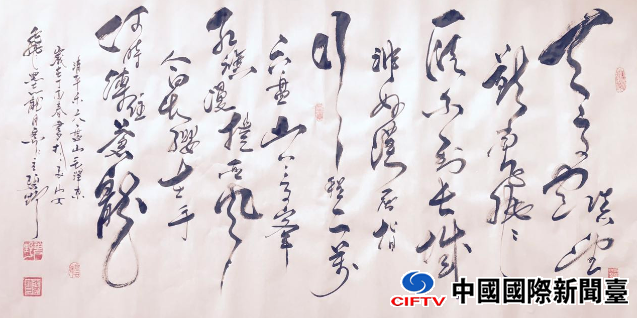 天高雲淡望
斷南飛
雁不到長城
非好漢屈指
行程二萬
六盤山上高峰
紅旗漫捲西風
今日長纓在手
何時縛住蒼龍
清平樂六盤山毛澤東
歲在丙申春書於
CIFTV
中國國際新聞臺